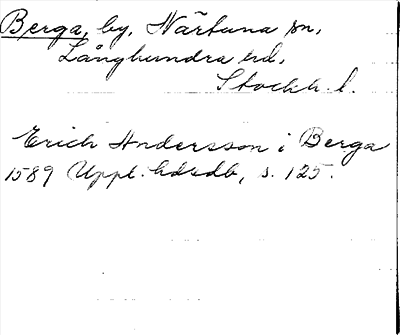 Berga, by, Närtuna sn,
Långhundra hd,
Stockh. l.
Erich Andersson i Berga
1589 Uppl. hdsdb, s. 125.